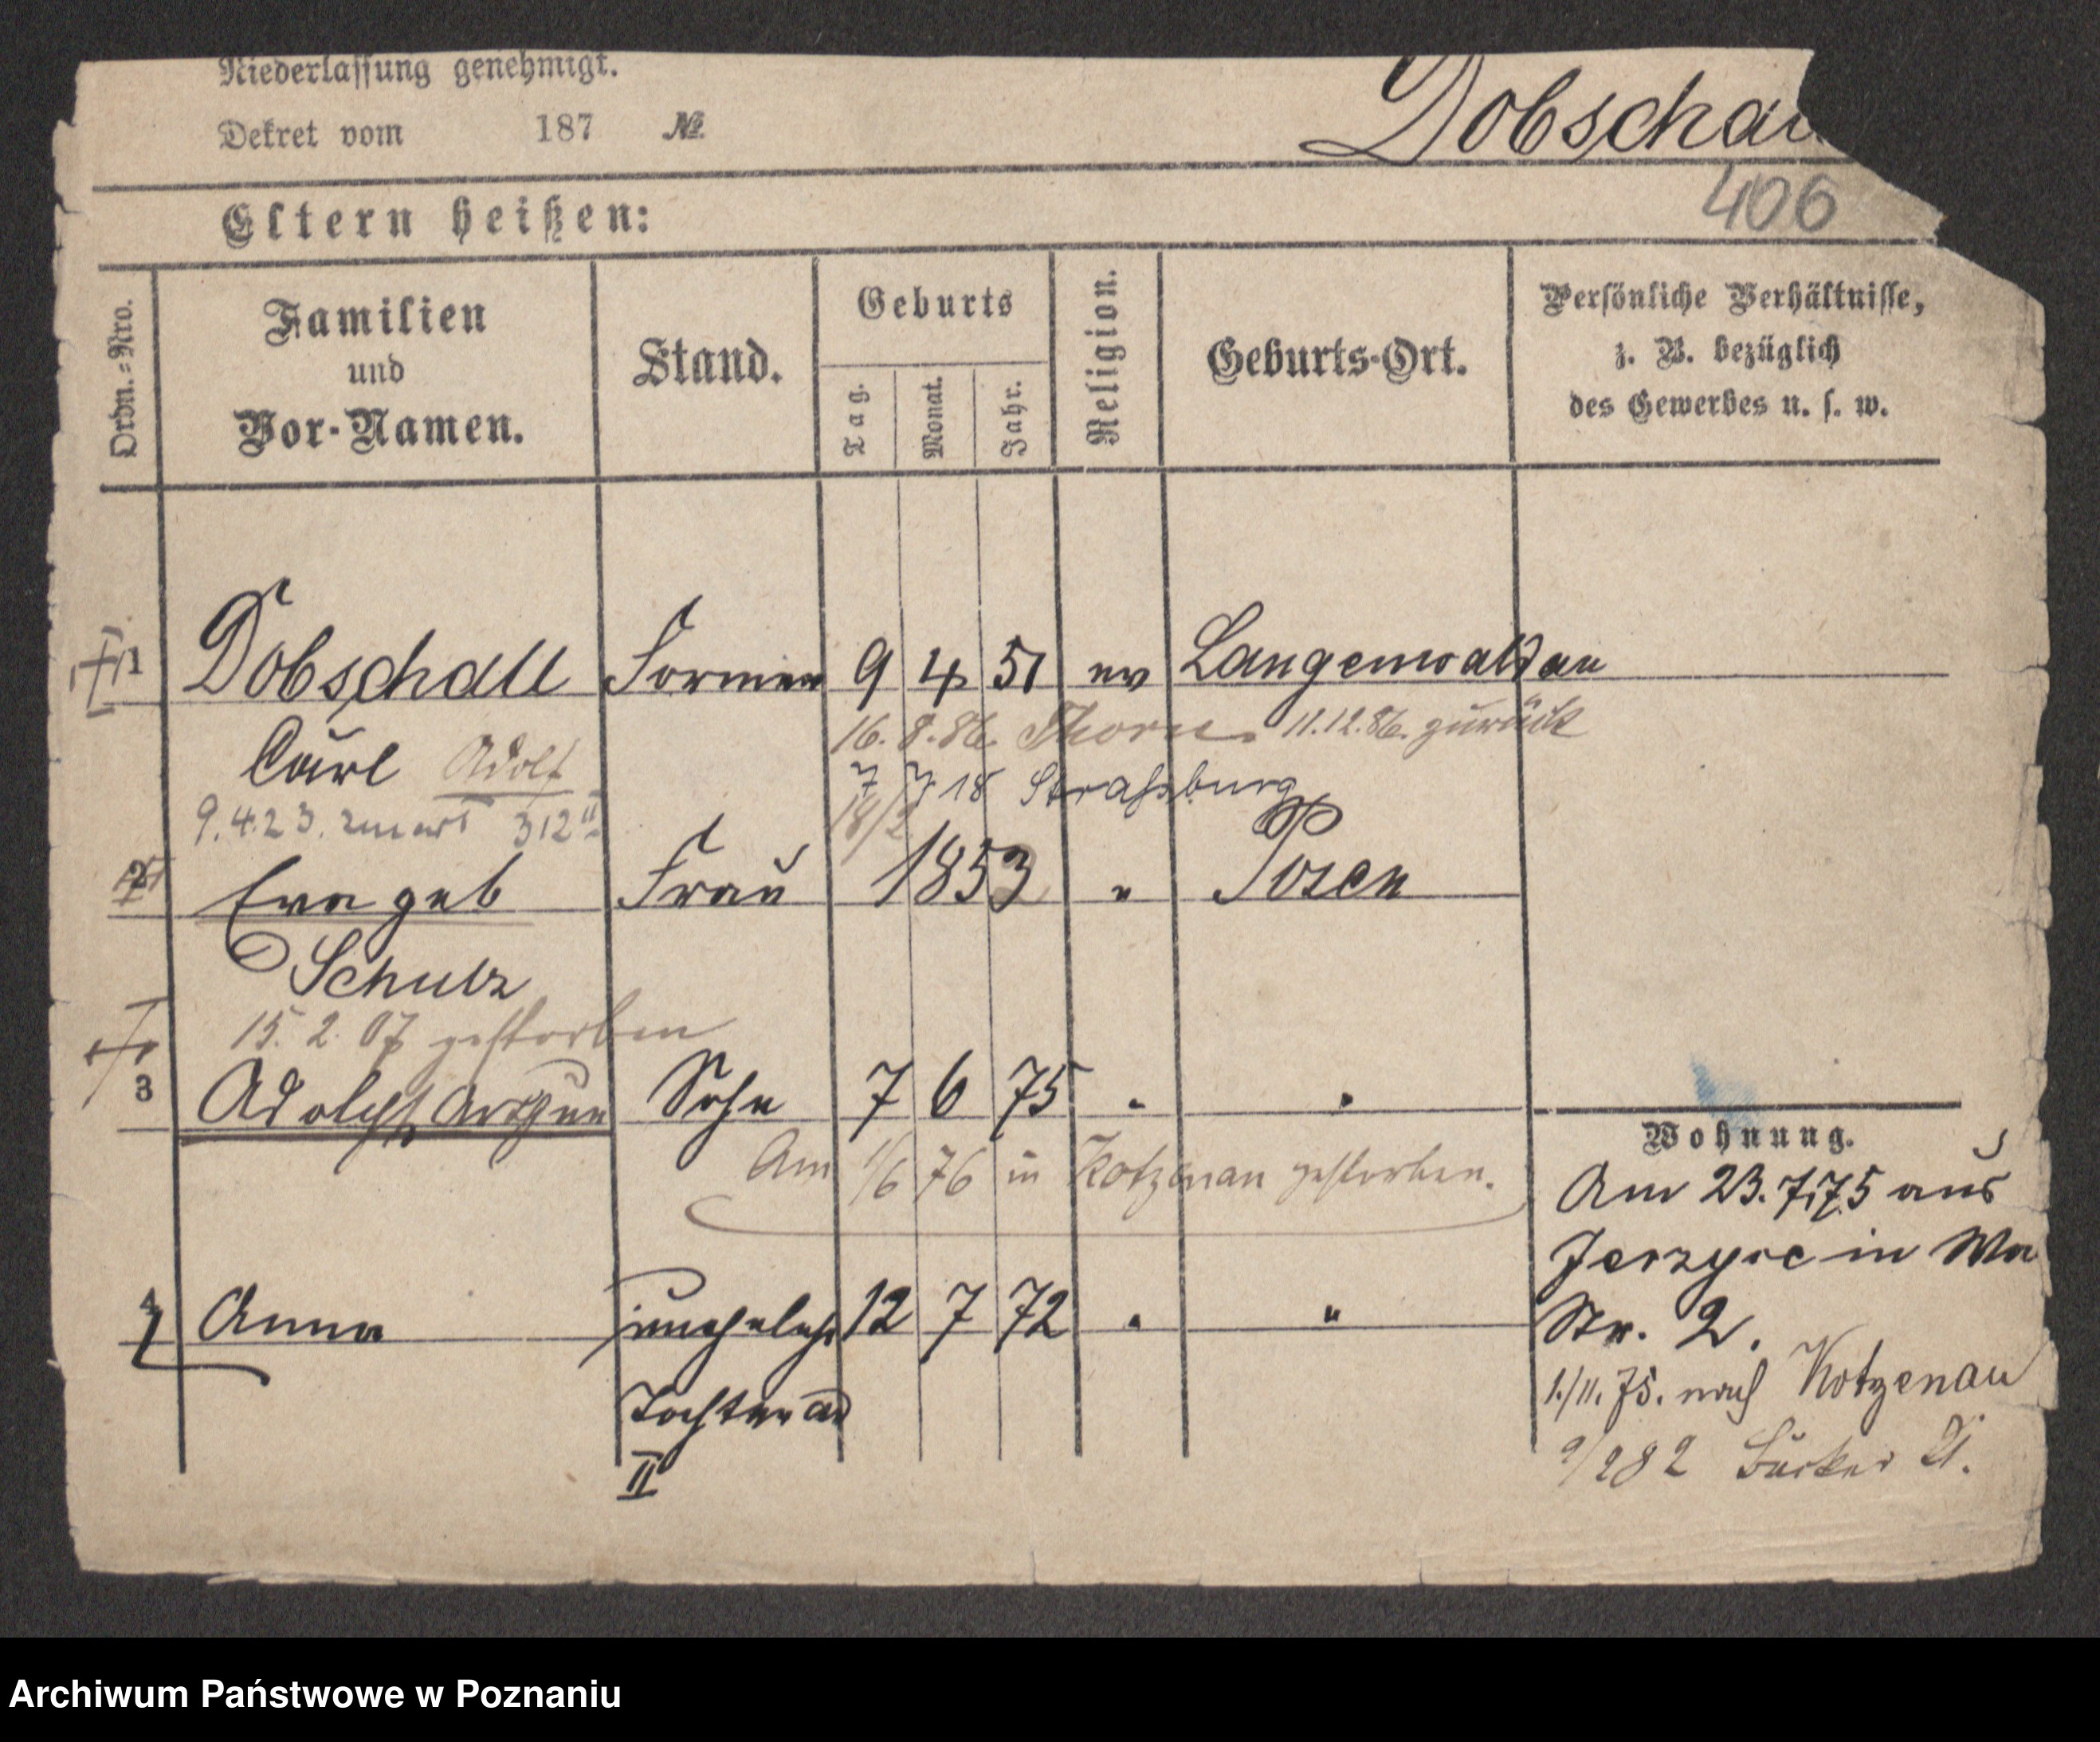 Niederlassung genehmigt.
Dekret vom 187 №
Dobschau
406
Eltern heißen:
Ordn.=Nro.
Familien
und
Vor-Namen.
Stand.
Geburts
Tag.
Monat.
Jahr.
Religion.
Geburts-Ort.
Persönliche Verhältnisse,
z. B. bezüglich
des Gewerbes u. s. w.
1 Dobschall Former 9 4 51 ev Langenwaldau
16. 8. 86. Thorn. 11.12.86. zurück
Carl Adolf
7 7 18 Strassburg
9.4.23. 312
18/2
2 Eva geb Frau 1853 " Posen
Schulz
15. 2. 07 gestorben
3 Adolph Sohn 7 6 75 " "
Am 1/6 76 in Kotzenau gestorben.
Wohnung.
Am 23.7.75 aus
Jerzyce in Wa
4 Anna unehel 12 7 72 " "
Str. 2.
Tochter ad
II
1./11. 75. nach Kotzenau
9/282
Archiwum Państwowe w Poznaniu